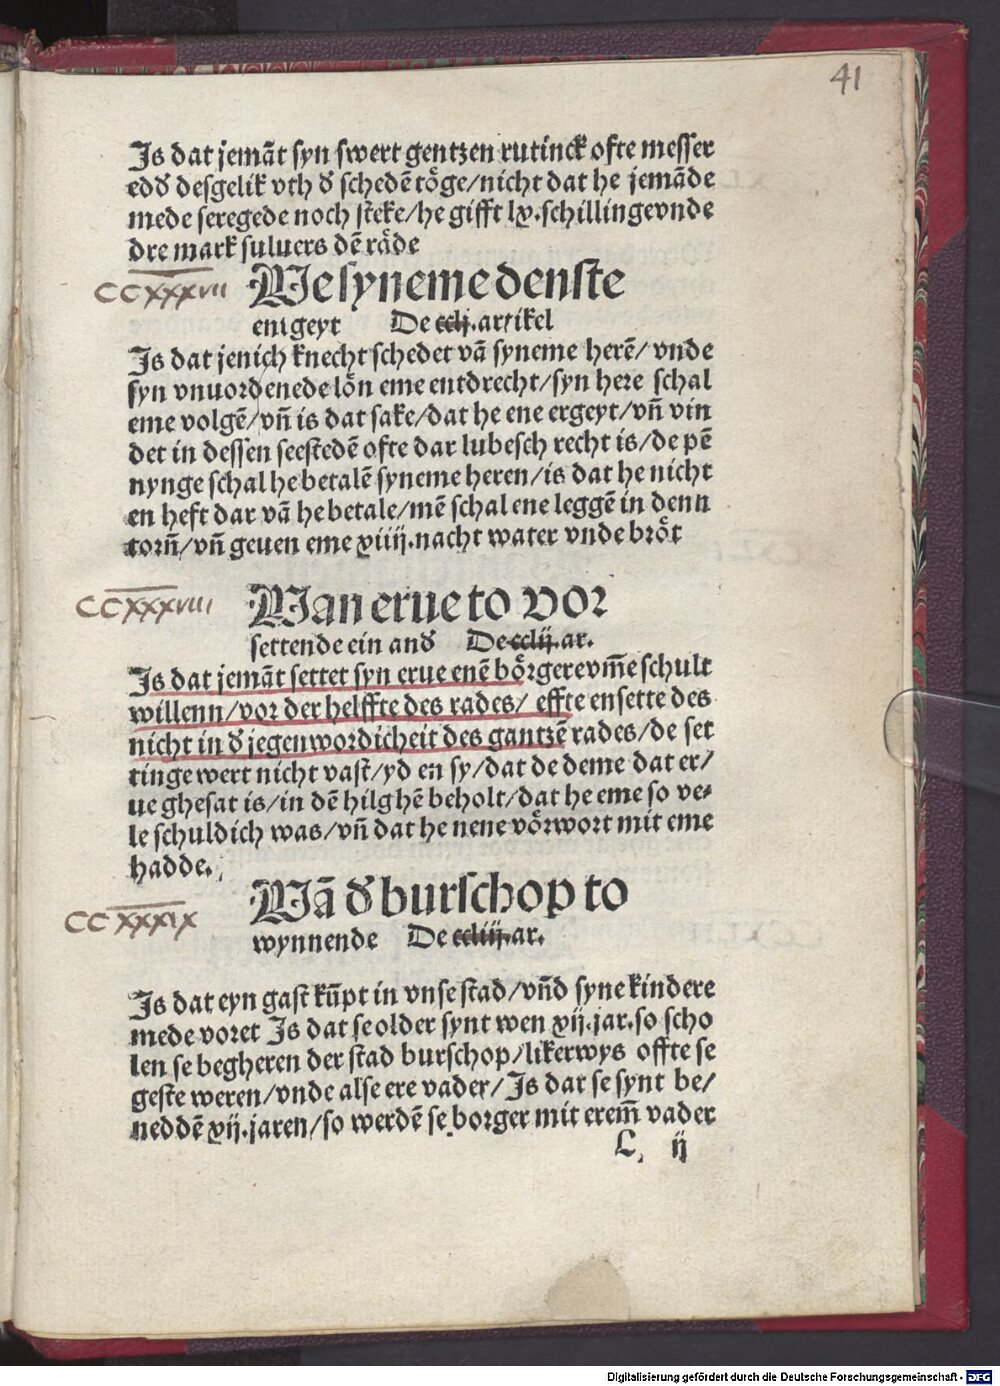 41
Is dat jemāt syn swert gentzen rutinck ofte messer
edd̕ desgelik vth d̕ schedē töge/nicht dat he jemāde
mede seregede noch steke/he gifft lx.schillingevnde
dre mark suluers dē räde
CCXXXVII We syneme denste
entgeyt De cclj.artikel
Is dat jenich knecht schedet vā syneme herē/vnde
syn vnuordenede lön eme entdrecht/syn here schal
eme volgē/vn̄ is dat sake/dat he ene ergeyt/vn̄ vin
det in dessen seestedē ofte dar lubesch recht is/de pē
nynge schal he betalē syneme heren/is dat he nicht
en heft dar vā he betale/mē schal ene leggē in denn
torn̄/vn̄ geuen eme xiiij.nacht water vnde bröt
CCXXXVIII Wan erue to vor
settende ein and̕ De cclij.ar.
Is dat jemāt settet syn erue enē börgerevm̄e schult
willenn/vor der helffte des rades/ effte ensette des
nicht in d̕ jegenwordicheit des gantzē rades/de set
tinge wert nicht vast/yd en sy/dat de deme dat er/
ue ghesat is/in dē hilghē beholt/dat he eme so ve-
le schuldich was/vn̄ dat he nene vörwort mit eme
hadde.
CCXXXIX Wā d̕ burschop to
wynnende De ccliij.ar.
Is dat eyn gast kūpt in vnse stad/vn̄d syne kindere
mede voret Is dat se older synt wen xij.jar.so scho
len se begheren der stad burschop/likerwys offte se
geste weren/vnde alse ere vader/Is dar se synt be/
neddē xij.jaren/so werdē se borger mit erem̄ vader
L ij
Digitalisierung gefördert durch die Deutsche Forschungsgemeinschaft - DFG